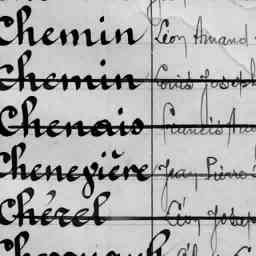 Chemin Léon Amand
Chemin Louis Joseph
Chenais Francis
Chenevière Jean Pierre
Chérel Joseph